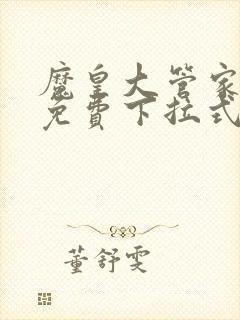 魔皇大管家
免費下拉式
董舒雯